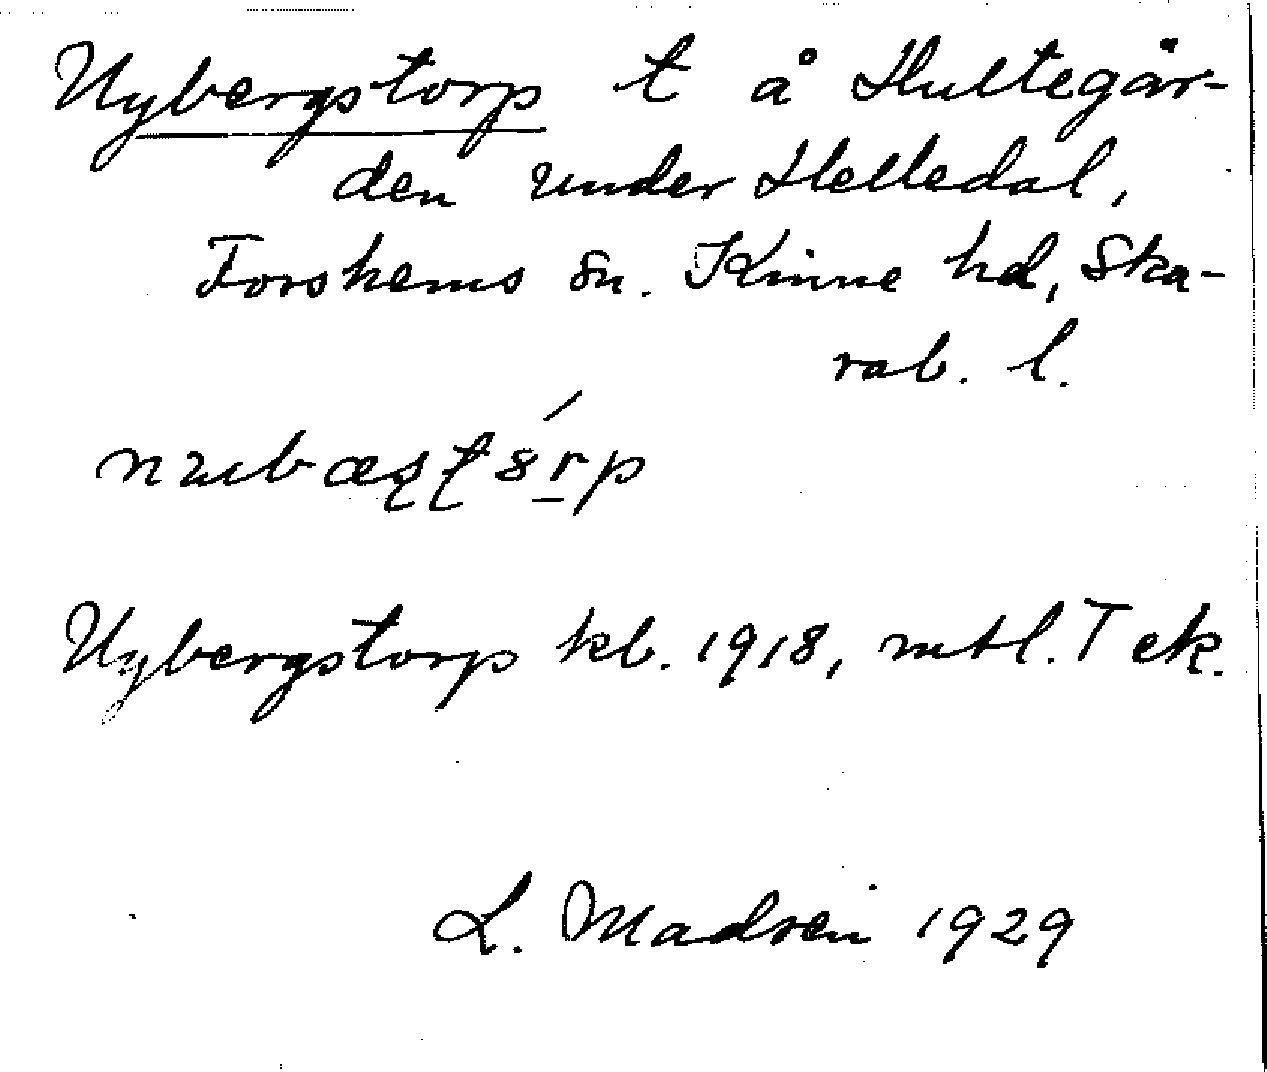 Nybergstorp t å Hultegår-
den under Helledal,
Forshems sn. Kinne hd, Ska-
rab. l.
Nybergstorp kb. 1918, mtl. T ek.
L. Madsén 1929